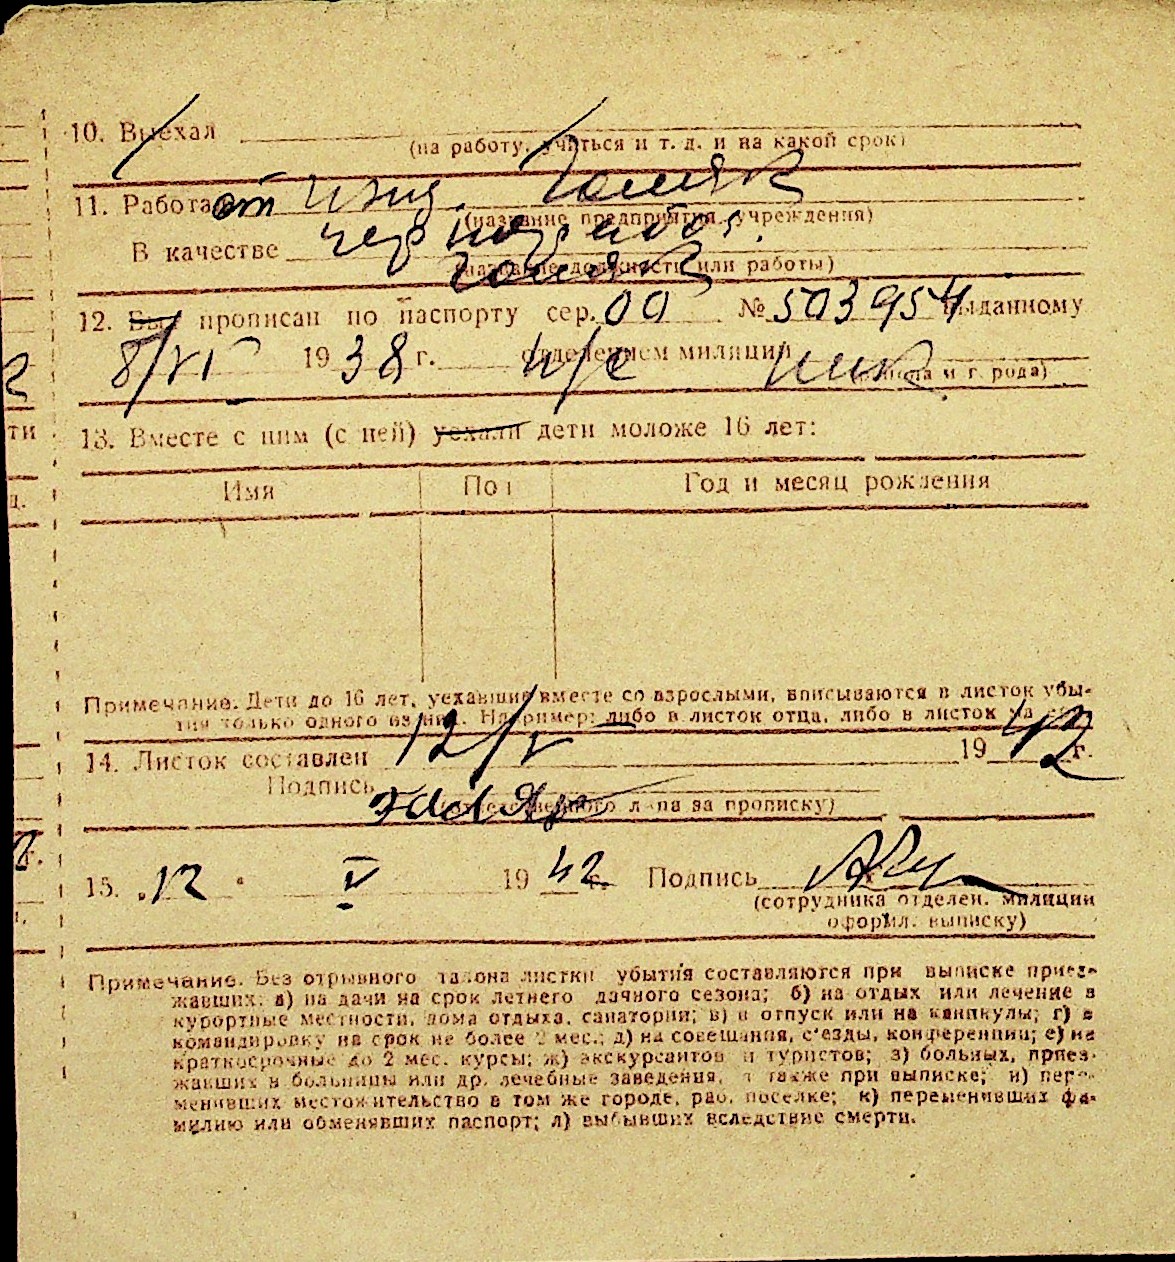 10. Выехал
(на работу, учиться и т. д. и на какой срок)
11. Работа от
(название предприятия, учреждения)
В качестве чернорабоч.
(название должности или работы)
12. Был прописан по паспорту сер. № 503954 выданному
8/VI 1938 г. отделением милиции
и г. рода)
13. Вместе с ним (с ней) уехали дети моложе 16 лет:
Имя Пол Год и месяц рождения
Примечание. Дети до 16 лет, уехавшие вместе со взрослыми, вписываются в листок убы-
тия только одного из них. Например: либо в листок отца, либо в листок
14. Листок составлен 12/V 1942 г.
Подпись
(ответственного лица за прописку)
15. „12 “ V 1942 г. Подпись
(сотрудника отделен. милиции
оформл. выписку)
Примечание. Без отрывного талона листки убытия составляются при выписке приез-
жавших: а) на дачи на срок летнего дачного сезона; б) на отдых или лечение в
курортные местности, дома отдыха, санатории; в) в отпуск или на каникулы; г) в
командировку на срок не более 2 мес.; д) на совещания, съезды, конференции; е) на
краткосрочные до 2 мес. курсы; ж) экскурсантов и туристов; з) больных, приез-
жавших в больницы или др. лечебные заведения, а также при выписке; и) пере-
менивших местожительство в том же городе, раб. поселке; к) переменивших фа-
милию или обменявших паспорт; л) выбывших вследствие смерти.